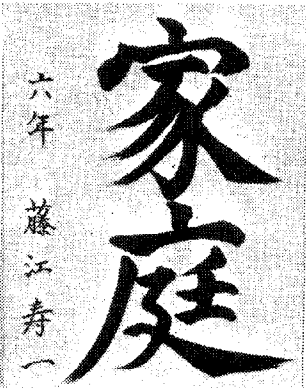 家庭
六年 藤江寿一